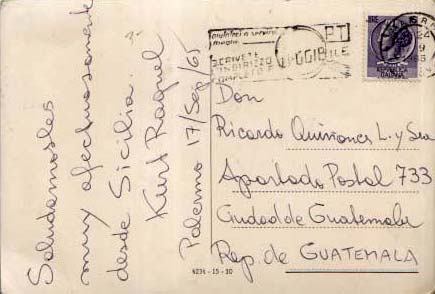 Saludamosles
muy afectuosamente
desde Sicilia.
Kurt Raquel
Palermo 17/Sep/65
aiutateci a servirvi
meglio
SCRIVETE
INDIRIZZO
COMPLETO E
LEGGIBILE
P.T.
Don
Ricardo Quiñones L. y Sra
Apartado Postal 733
Ciudad de Guatemala
Rep. de GUATEMALA
4234 - 15 - 30